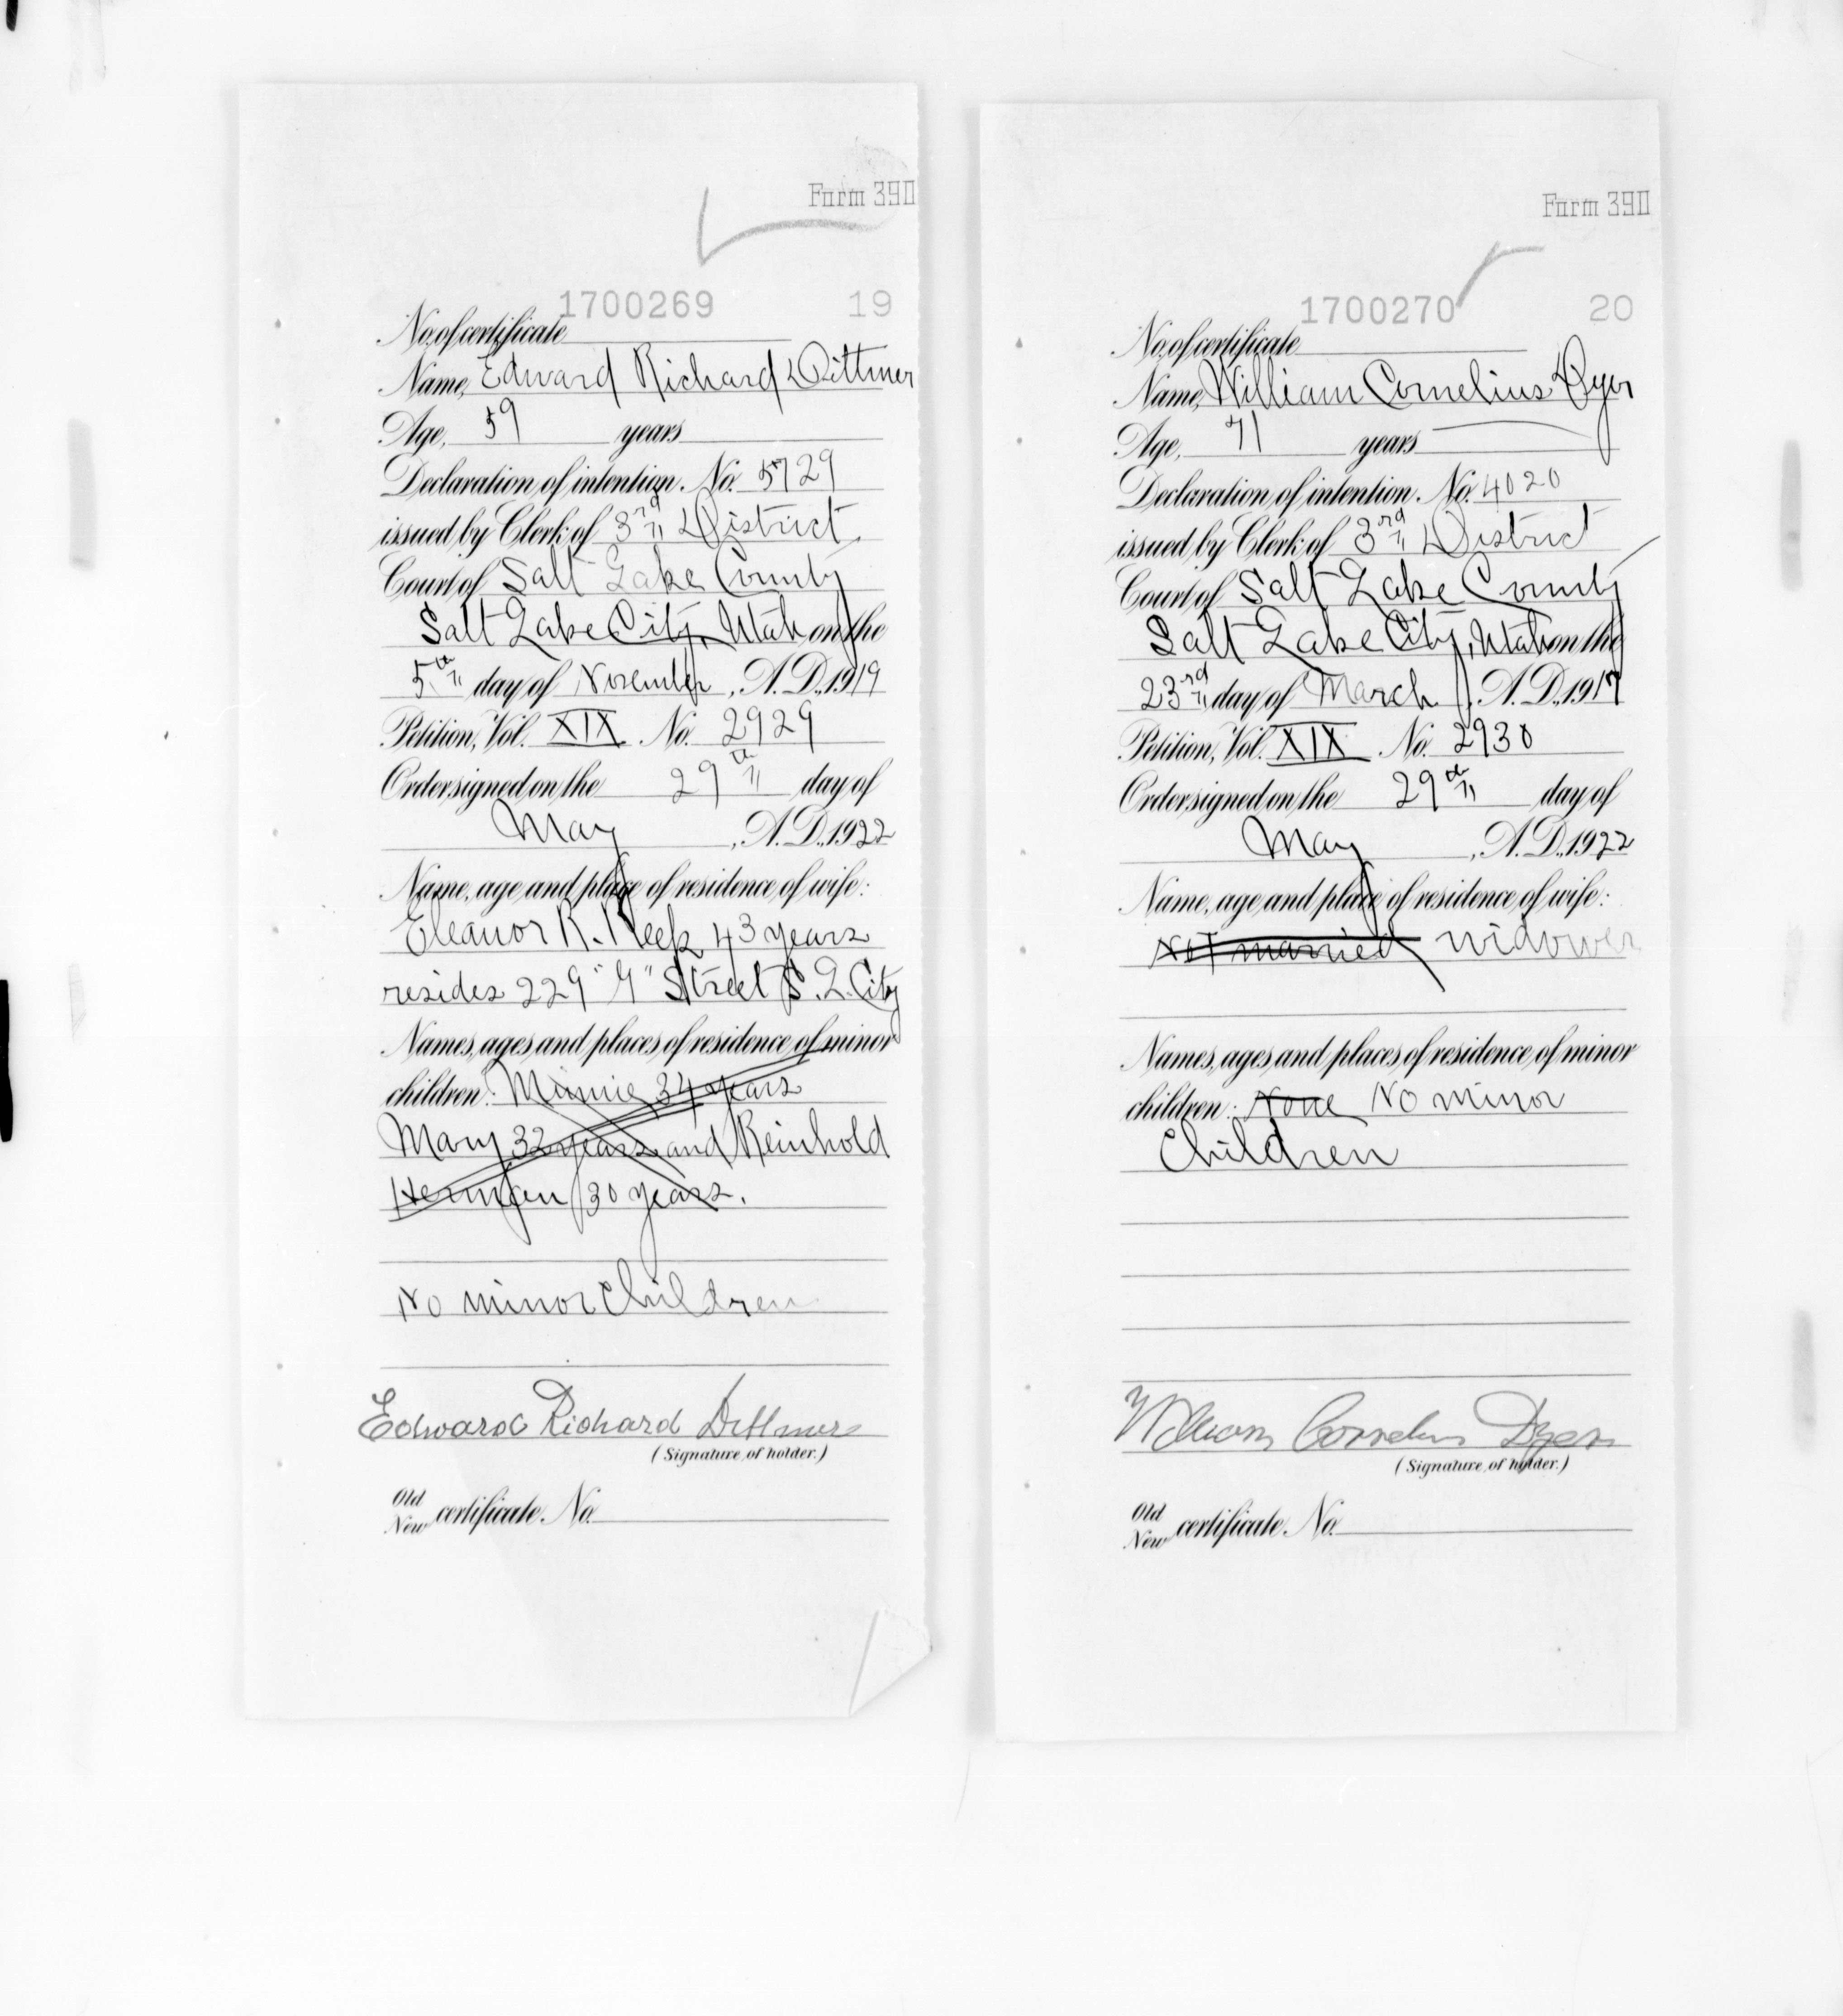 Form 390
1700269 19
No. of certificate
Name, Edward Richard Dittmer
Age, 59 years
Declaration of intention No. 5729
issued by Clerk of 3rd District
Court of Salt Lake County
Salt Lake City, Utah on the
5th day of November, A.D. 1919
Petition, Vol. XIX No. 2929
Order signed on the 29th day of
May, A.D. 1922
Name, age and place of residence of wife:
Eleanor R. 43 years
resides 229 "G" Street S. L. City
Names, ages and places of residence of minor
children: Minnie 34 years
Mary 32 years and Reinhold
Herman 30 years.
No minor children
Edward Richard Dittmer
(Signature of holder.)
Old
New certificate No.
Form 390
1700270 20
No. of certificate
Name, William Cornelius Dyer
Age, 71 years
Declaration of intention No. 4020
issued by Clerk of 3rd District
Court of Salt Lake County
Salt Lake City, Utah on the
23rd day of March, A.D. 1917
Petition, Vol. XIX No. 2930
Order signed on the 29th day of
May, A.D. 1922
Name, age and place of residence of wife:
Not married widower
Names, ages and places of residence of minor
children: None No minor
Children
William Cornelius Dyer
(Signature of holder.)
Old
New certificate No.